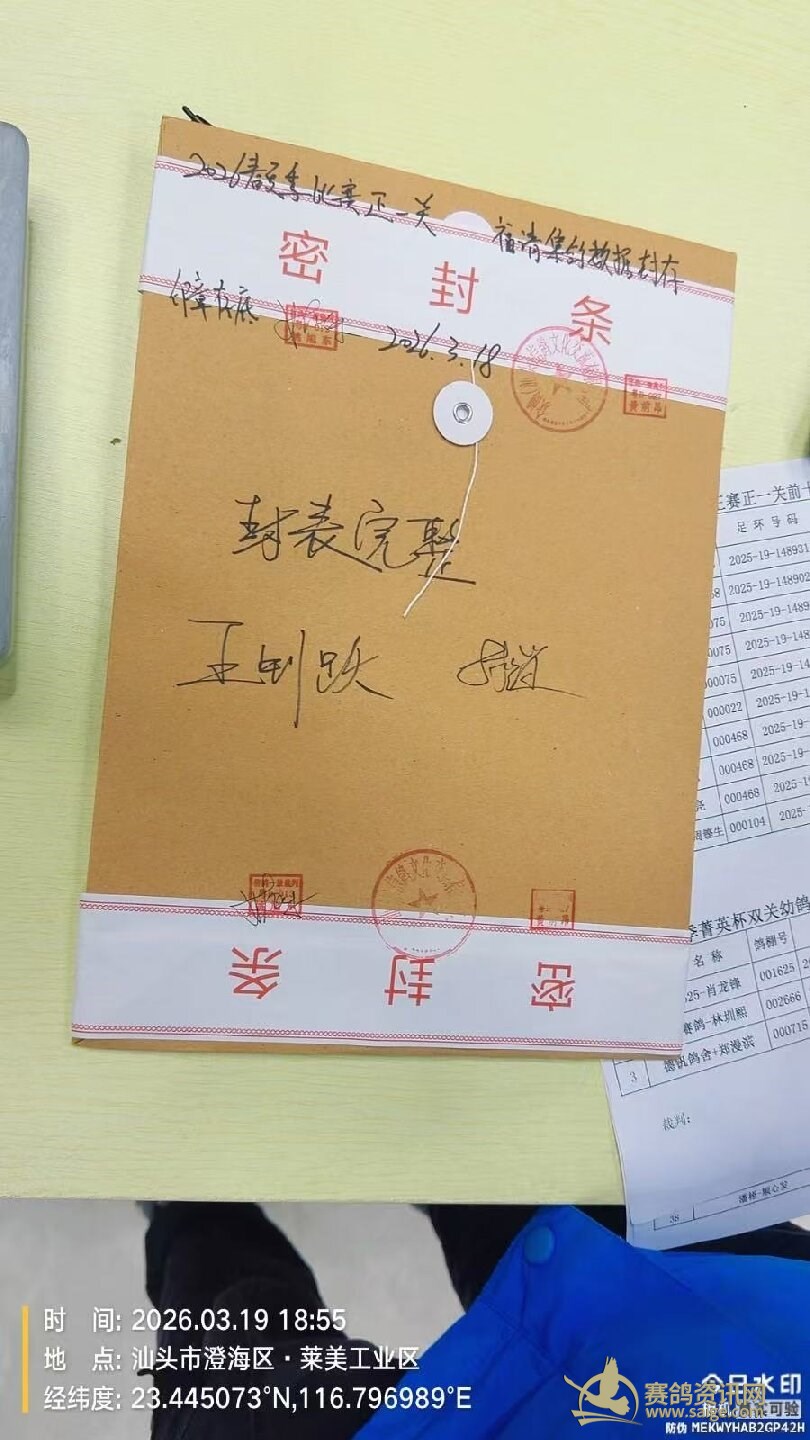 2026春季比赛正一关
福清集鸽数据封存
密封条
2026.3.18
封表完整
密封条
王赛正一关前十
足环号码
2025-19-148931
2025-19-148902
075 2025-19-148
0075 2025-19-148
00075 2025-19-14
000022 2025-19-1
000468 2025-19-
000468 2025-19-
亮 000468 2025-1
000104 2025-
季菁英杯双关幼鸽
名称 鸽棚号
25-肖龙锋 001625
赛鸽-林圳熙 002666
3 鸽舍+郑漫滨 000715
裁判:
38
时 间: 2026.03.19 18:55
地 点: 汕头市澄海区·莱美工业区
经纬度: 23.445073°N,116.796989°E
今日水印
相机 真实可验
防伪 MEKWYHAB2GP42H
赛鸽资讯网
www.saige.com